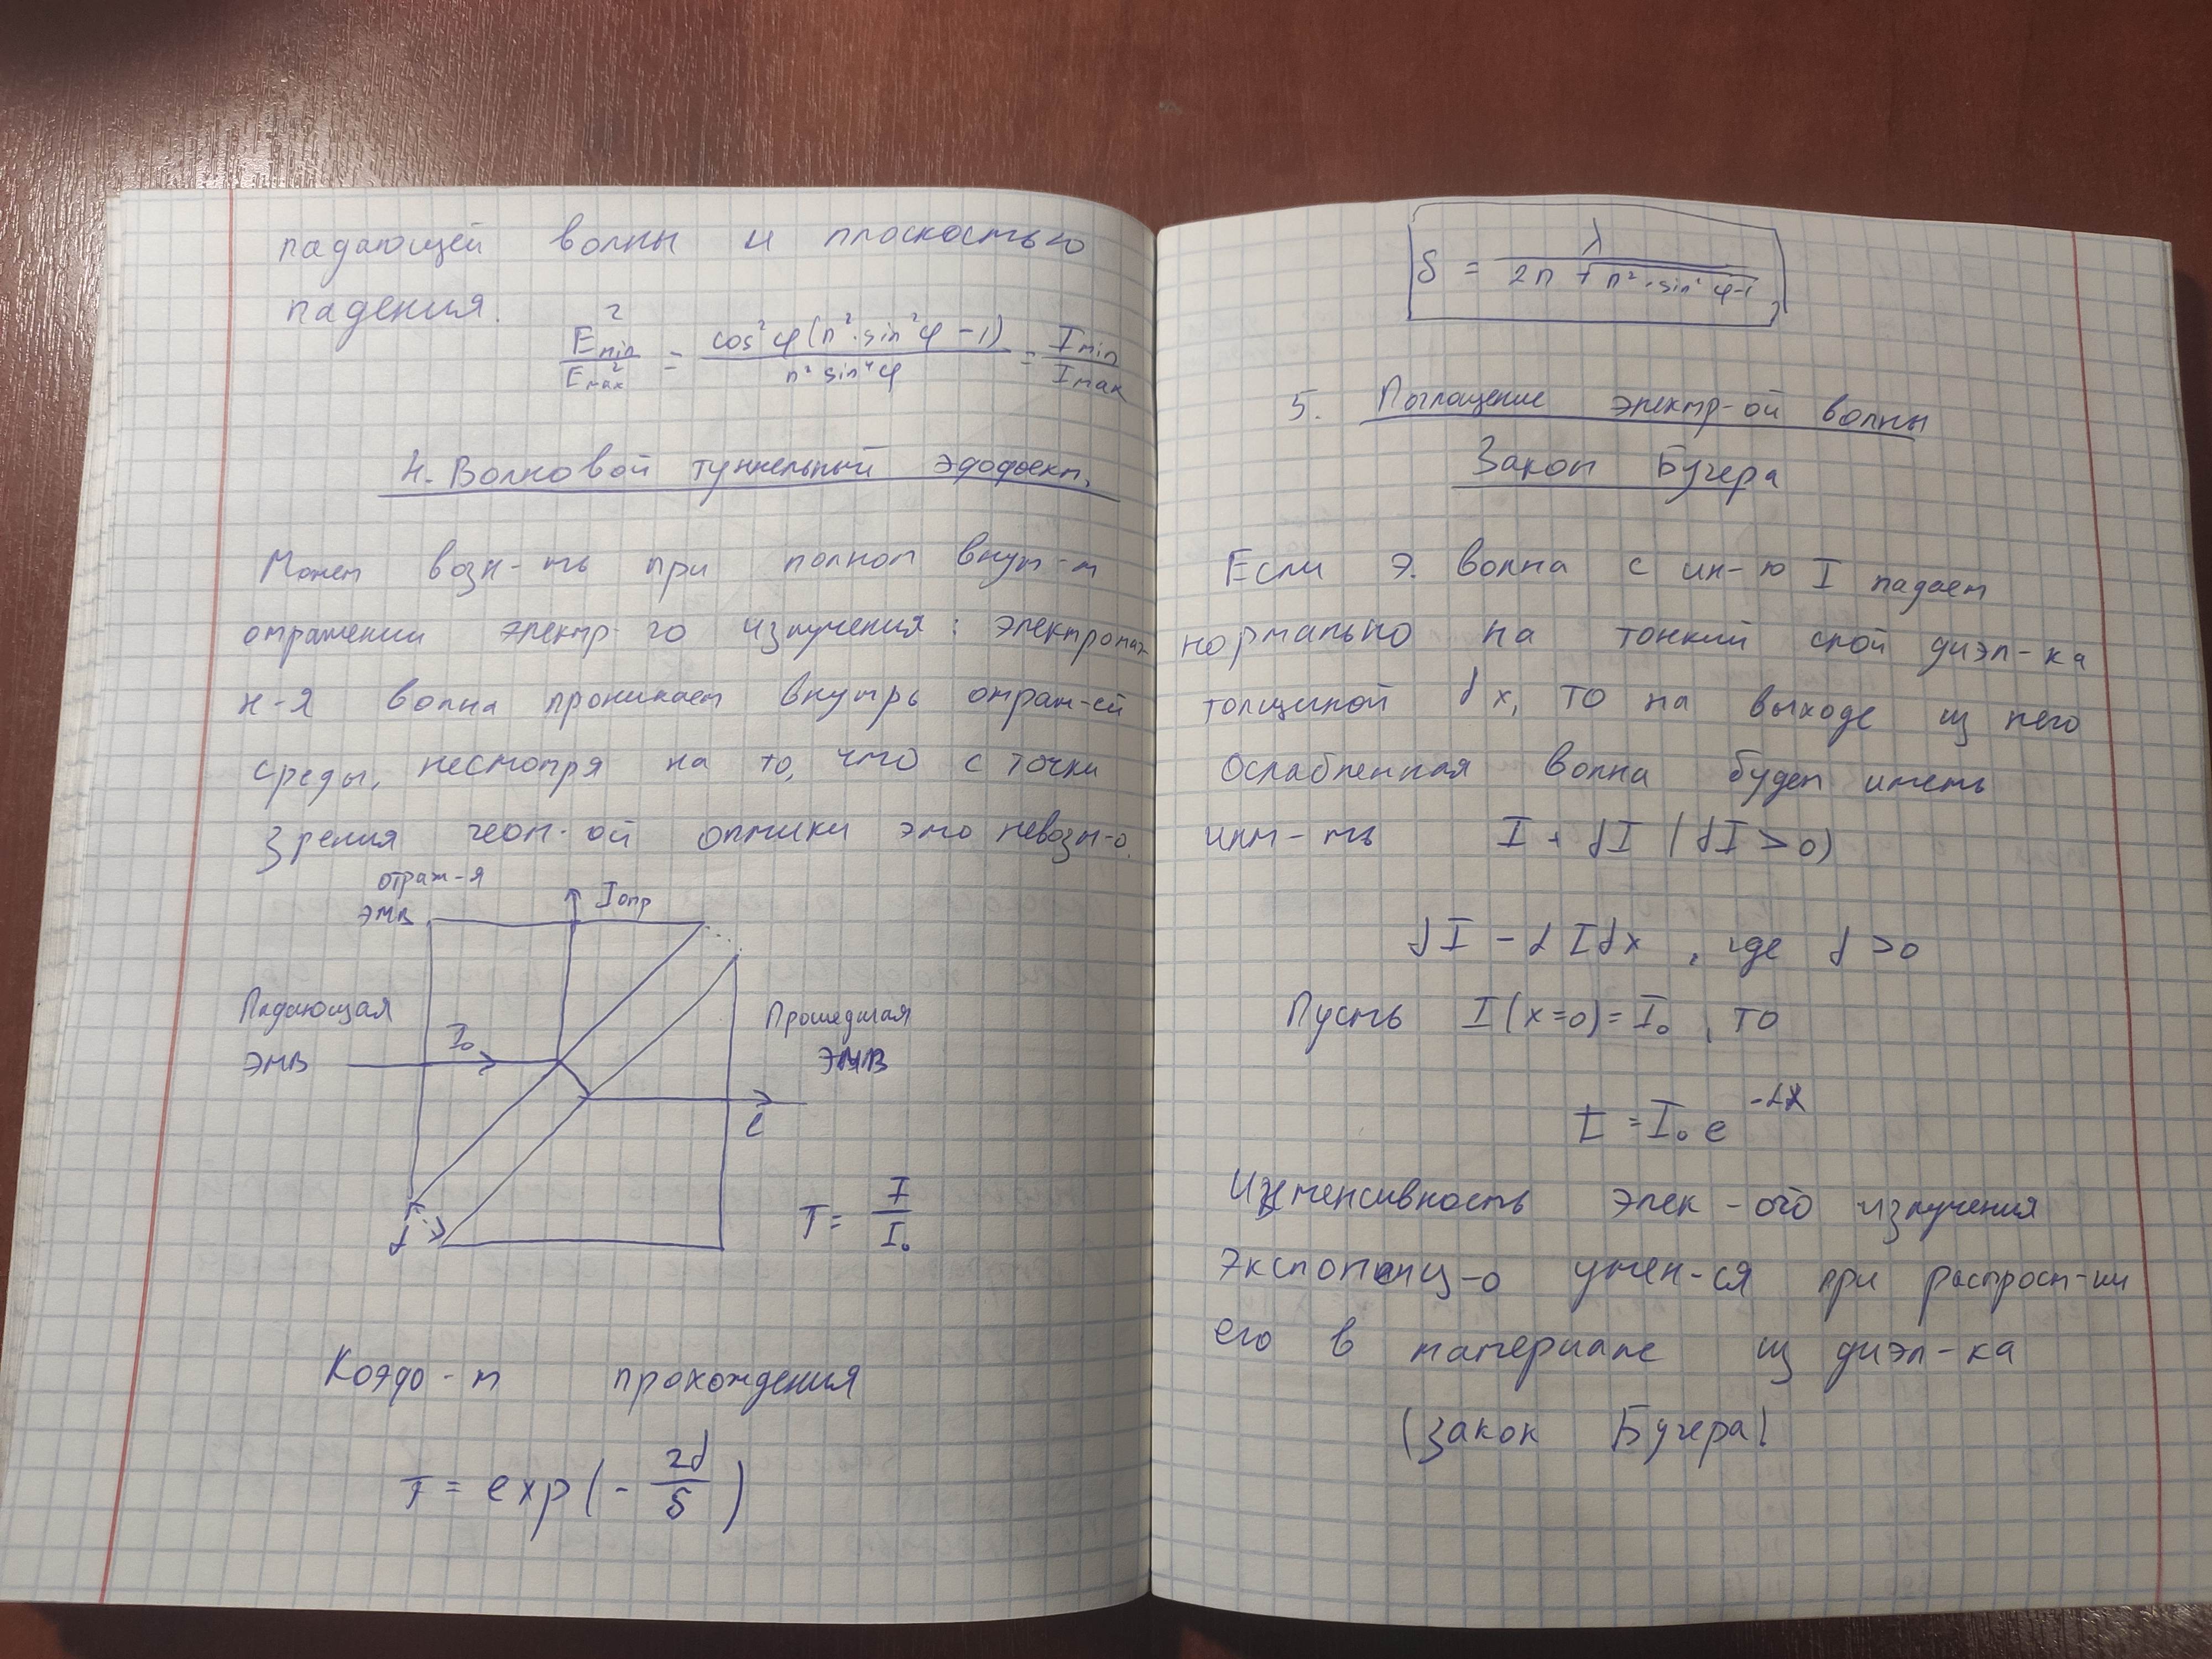 падающей волны и плоскостью
падения.
E²min / E²max = cos²φ(n²·sin²φ-1) / n² sin⁴φ = Imin / Imax
4. Волновой туннельный эффект.
Может возн-ть при полном внут-м
отражении электр-го излучения: электромаг-
н-я волна проникает внутрь отраж-ей
среды, несмотря на то, что с точки
зрения геом-ой оптики это невозм-о.
отраж-я
ЭМВ
Iотр
Падающая
ЭМВ
I₀
Прошедшая
ЭМВ
d
T = I / I₀
Коэфф-т прохождения
T = exp(- 2d / δ)
δ = λ / 2π √n²·sin²φ-1
5. Поглощение электр-ой волны
Закон Бугера
Если э. волна с ин-ю I падает
нормально на тонкий слой диэл-ка
толщиной dx, то на выходе из него
Ослабленная волна будет иметь
инт-ть I + dI (dI > 0)
dI - αIdx, где α > 0
Пусть I(x=0) = I₀, то
I = I₀ e^-αx
Интенсивность элек-ого излучения
экспоненц-о умен-ся при распрост-ии
его в материале из диэл-ка
(закон Бугера)